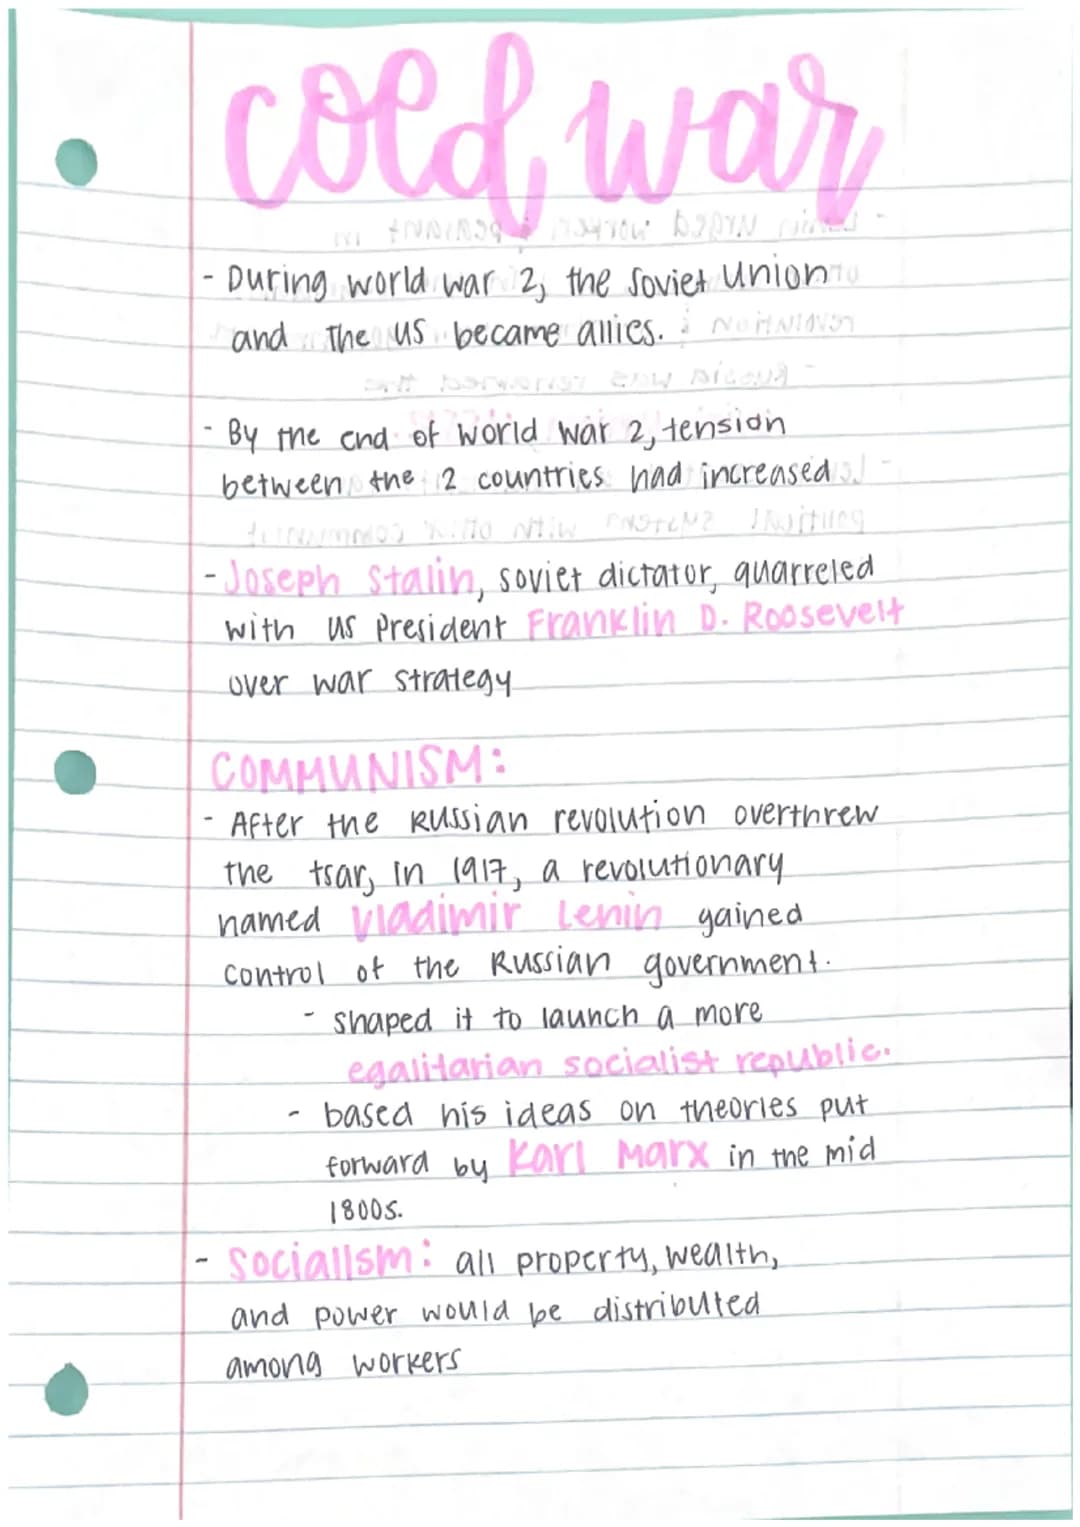 cold war
- During world war 2, the Soviet Union
and the US became allies.
- By the end of world war 2, tension
between the 2 countries had increased
- Joseph Stalin, soviet dictator, quarreled
with US President Franklin D. Roosevelt
over war strategy
COMMUNISM:
- After the Russian revolution overthrew
the tsar, in 1917, a revolutionary
named Vladimir Lenin gained
control of the Russian government.
- shaped it to launch a more
egalitarian socialist republic.
- based his ideas on theories put
forward by Karl Marx in the mid
1800s.
- Socialism: all property, wealth,
and power would be distributed
among workers